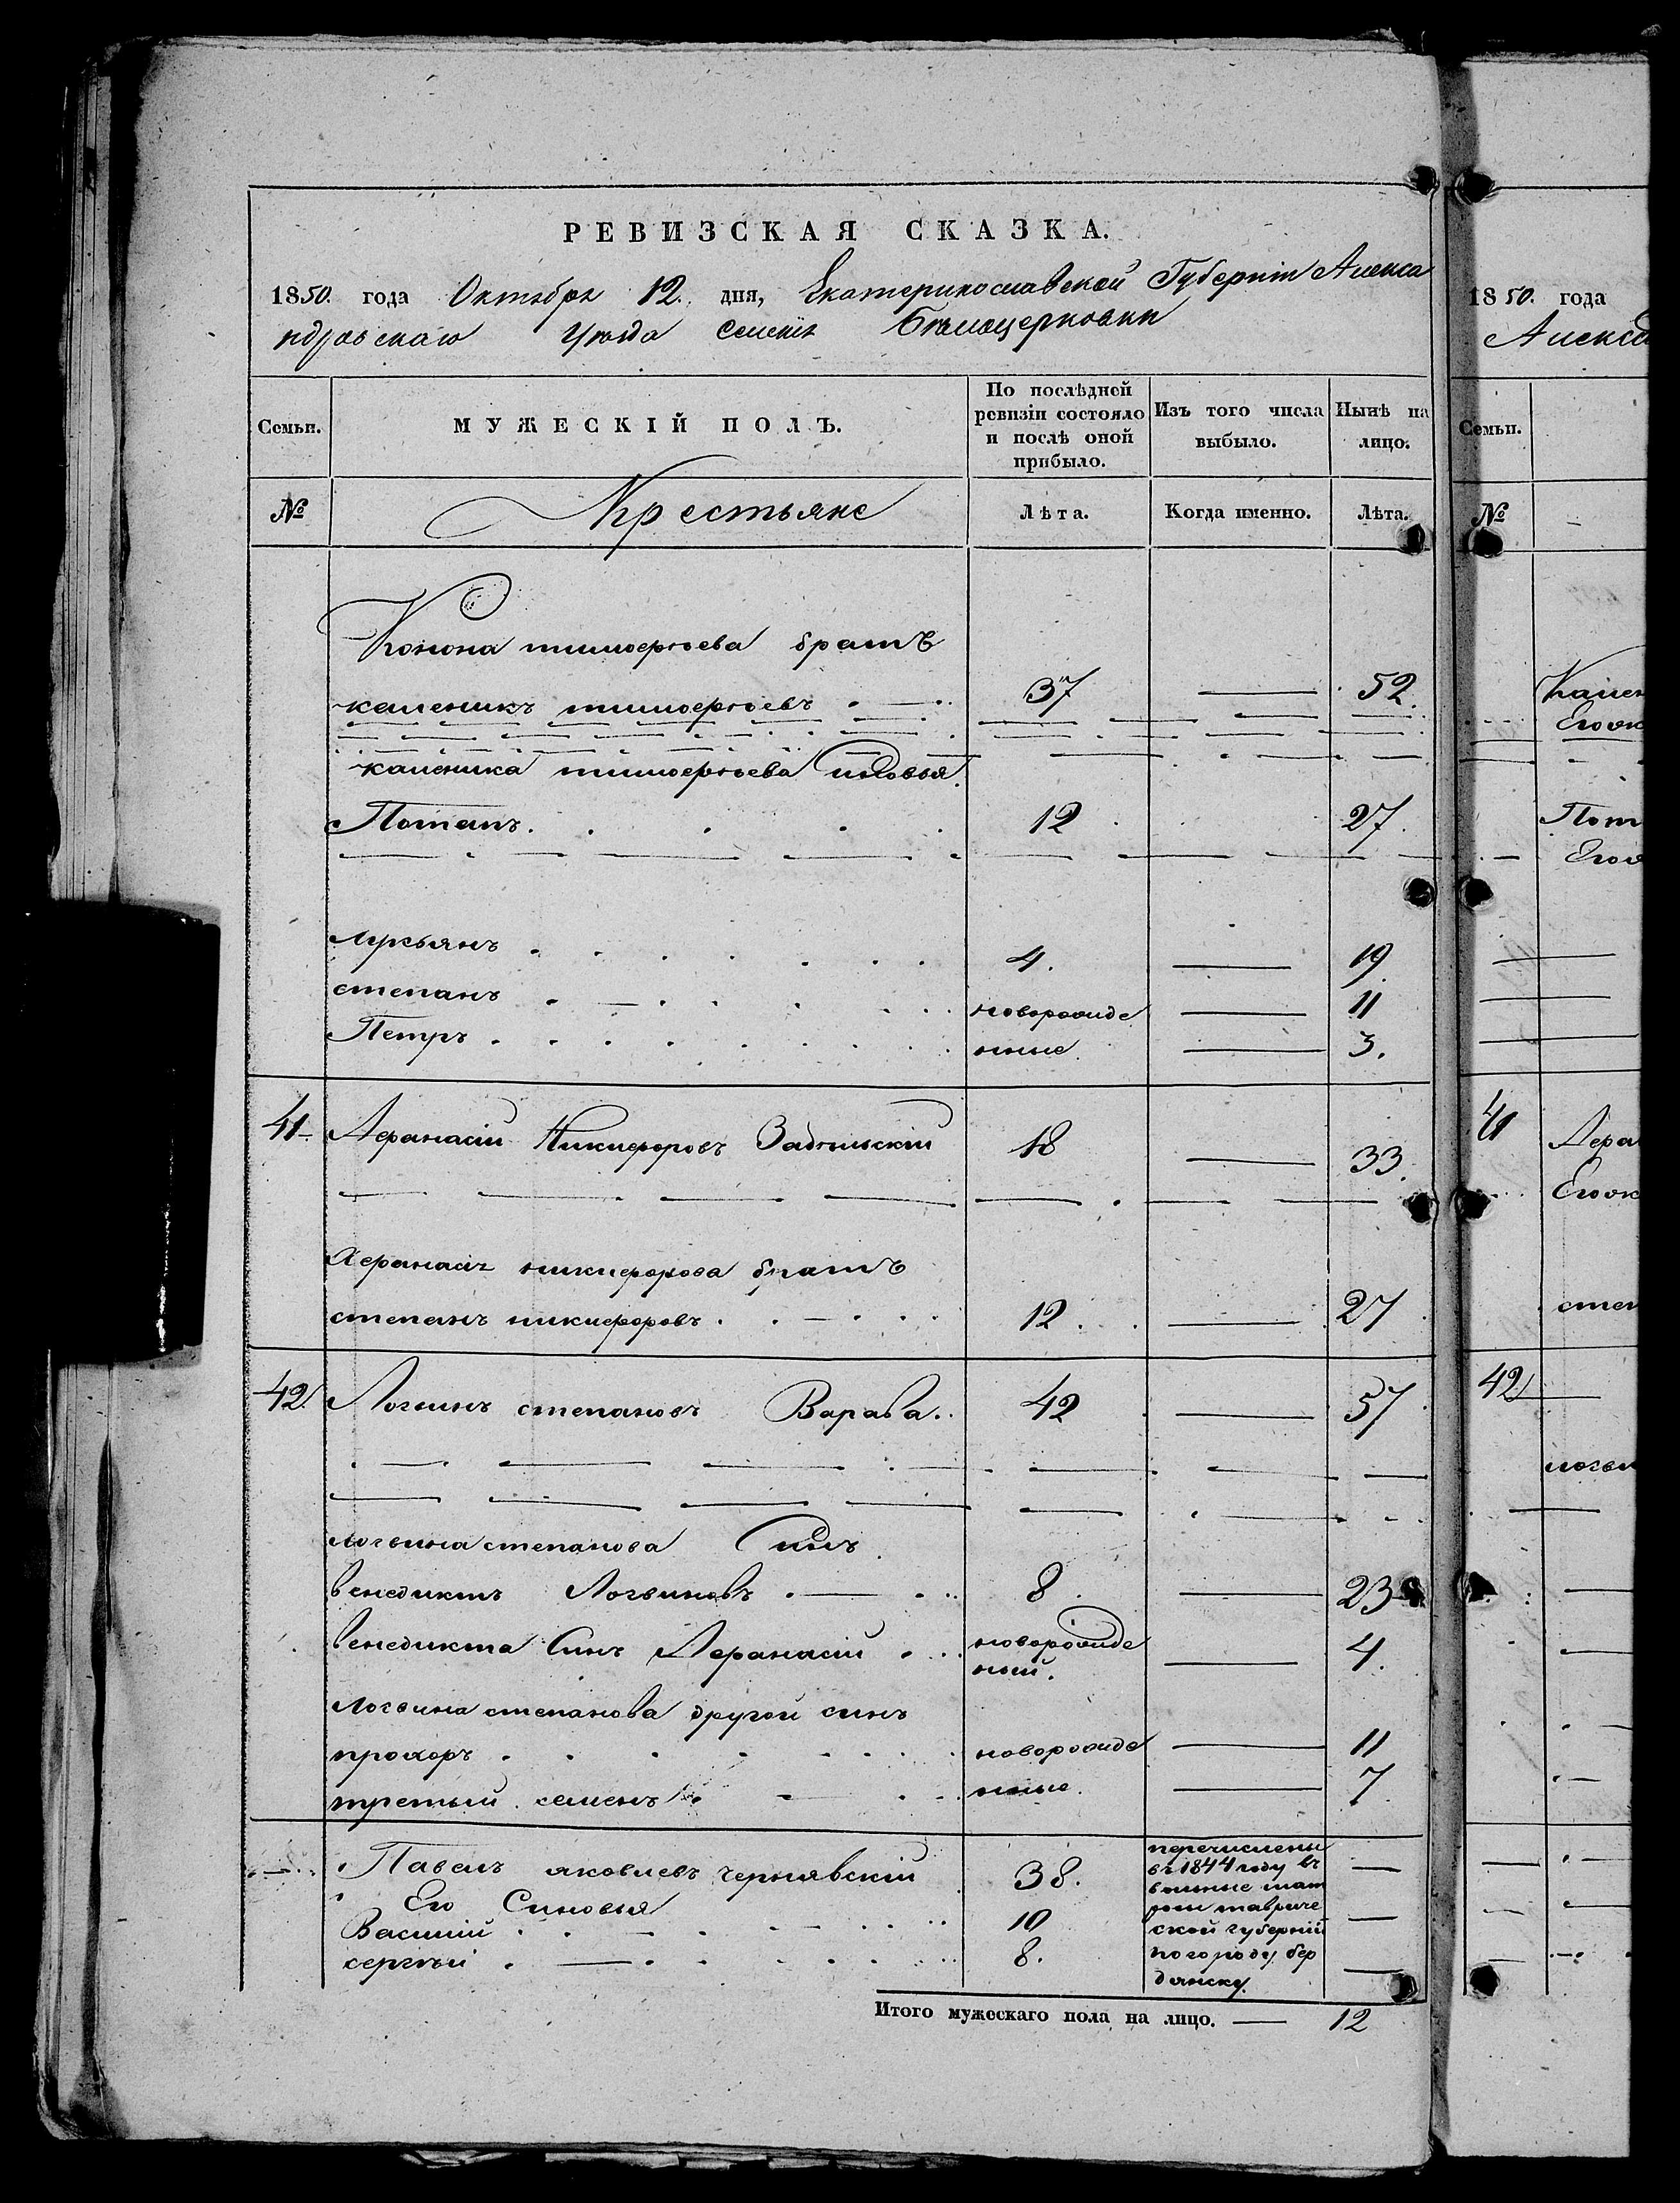 РЕВИЗСКАЯ СКАЗКА.
1850. года Октября 12. дня, Екатеринославской Губерніи Алекса
ндровскаго Уѣзда Селенія Бѣлоцерковки
Семьи. МУЖЕСКІЙ ПОЛЪ. По послѣдней ревизіи состояло и послѣ оной прибыло. Изъ того числа выбыло. Нынѣ на лицо.
№ Крестьяне Лѣта. Когда именно. Лѣта.
Конона тимофѣева братъ
каленикъ тимофѣевъ 37 52.
каленика тимофѣева сыновья
Потапъ. 12 27.
лукьянъ 4. 19.
степанъ новорожде 11
Петръ нные 3.
41 Афанасій Никифоровъ Забѣльскій 18 33.
Афанасія никифорова братъ
степанъ никифоровъ 12. 27
42. Логвинъ степановъ Варава. 42 57
логвина степанова Сынъ
венедиктъ Логвиновъ 8. 23
венедикта Сынъ Афанасій новорожде 4.
ный.
логвина степанова другой сынъ
прохоръ новорожде 11
третьий семенъ нные. 7
Павелъ яковлевъ чернявскій 38.
Его Сыновья
Василій 10
сергѣй 8.
перечислены
въ 1844 году въ
вольные мат
росы тавриче
ской губерніи
по городу бер
дянску.
Итого мужескаго пола на лицо. 12
1850. года
Алекса
Семьи.
№
Кален
Его ж
Пот
Его
41 Афа
Его ж
степ
42
логви